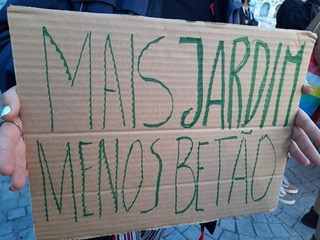 MAIS JARDIM
MENOS BETÃO